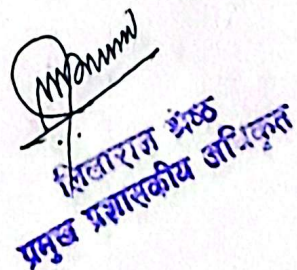 शिवाराज श्रेष्ठ
प्रमुख प्रशासकीय अधिकृत